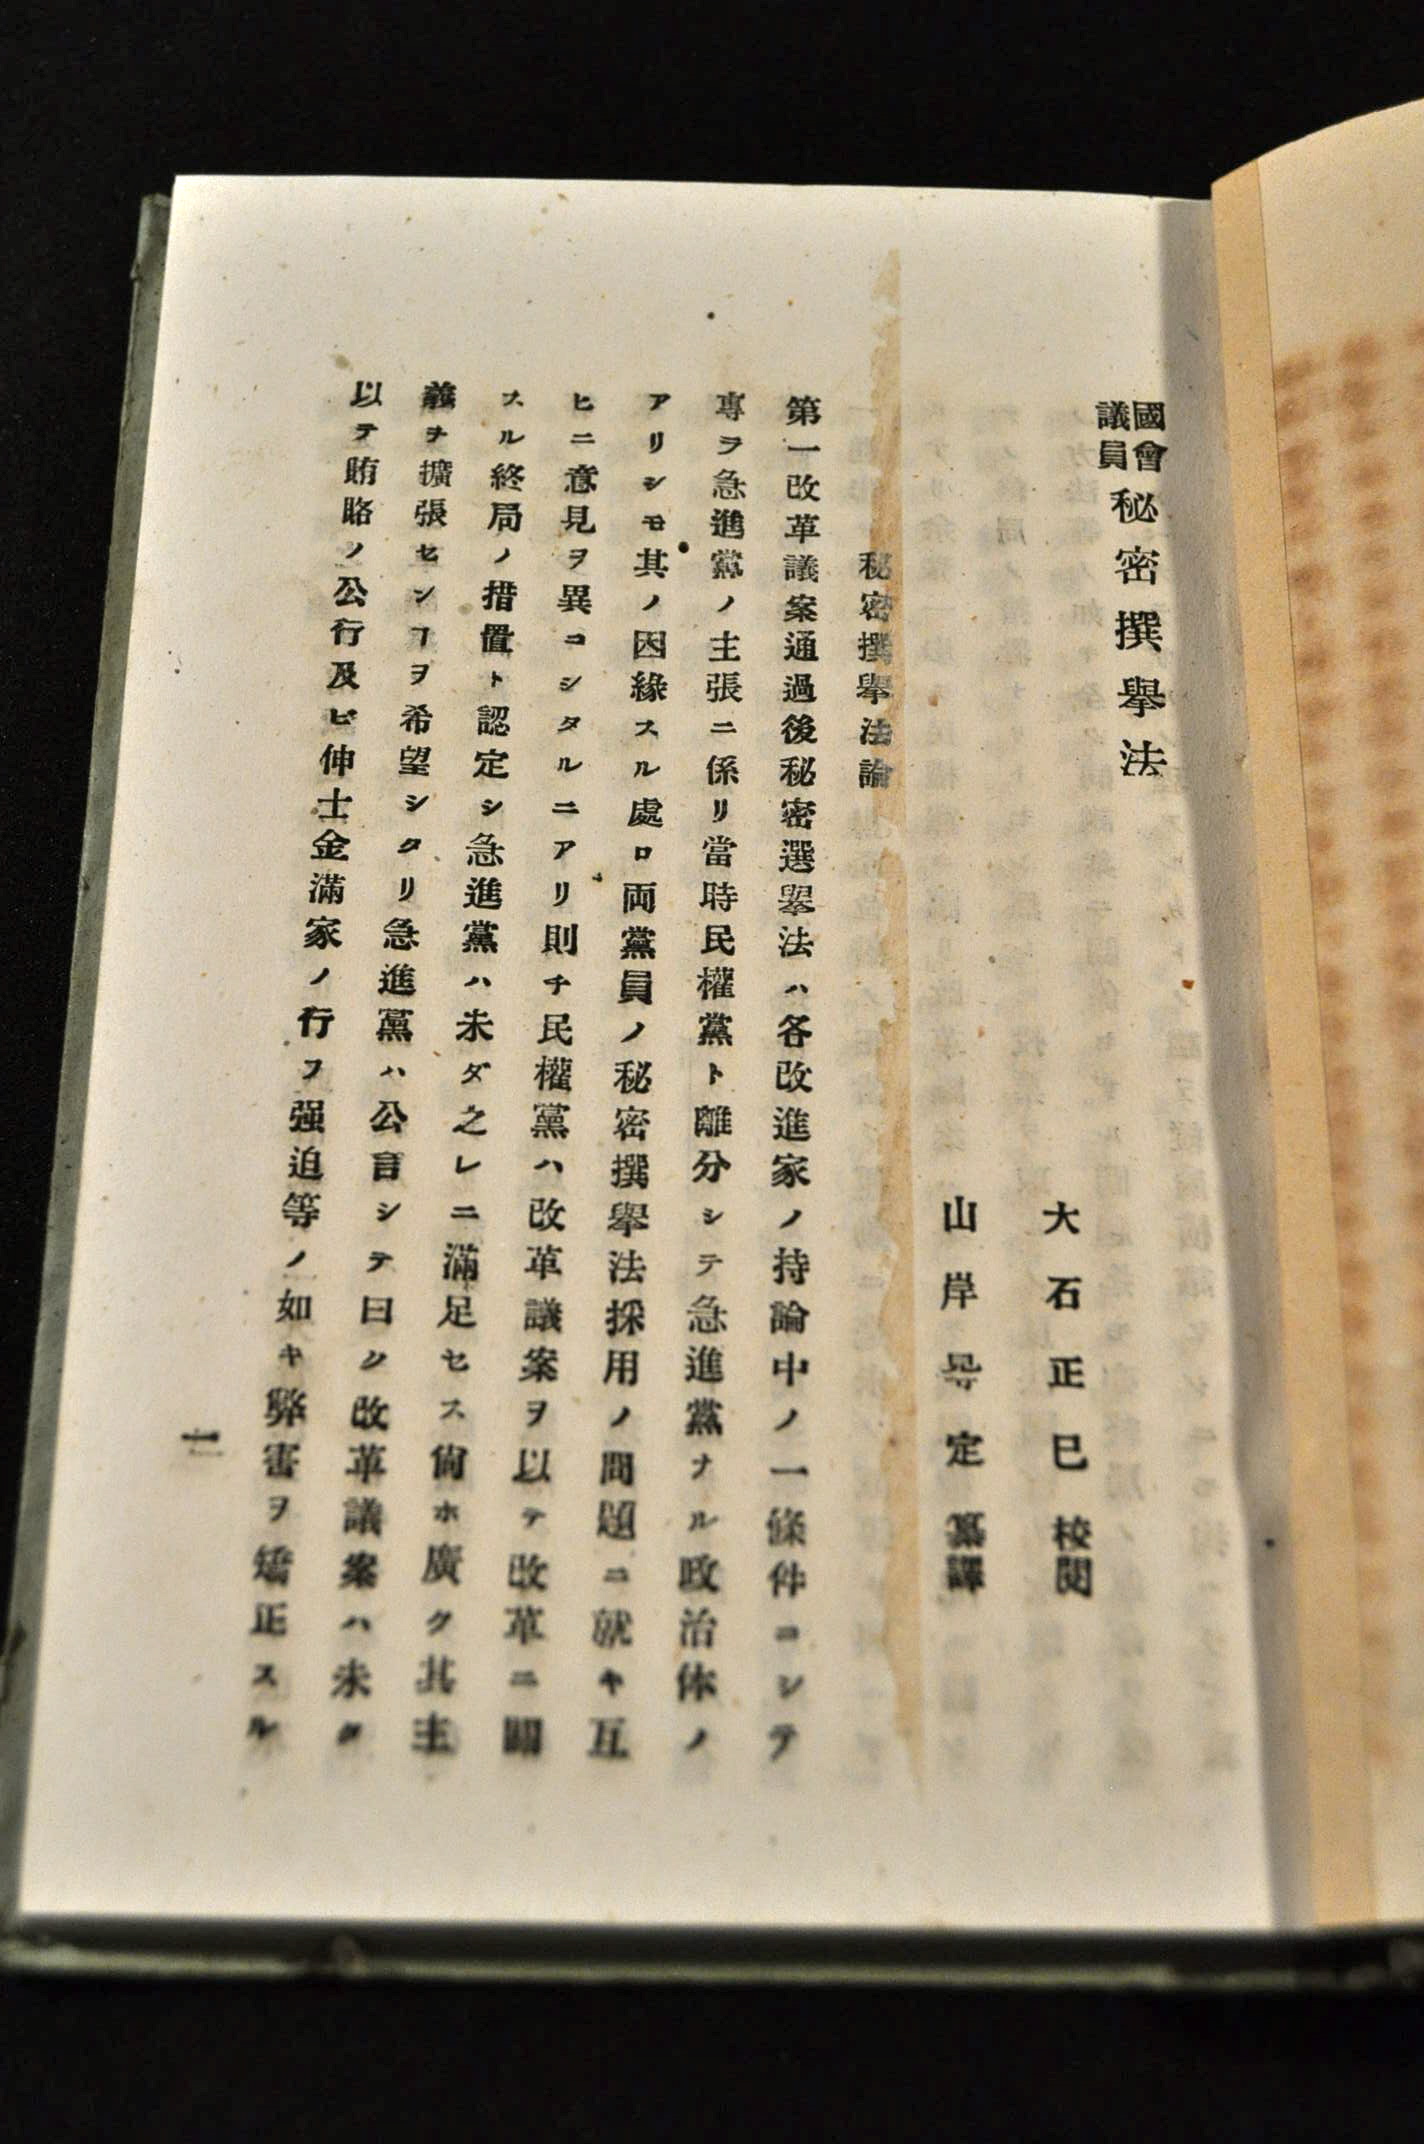 國會議員秘密撰擧法
大石正巳校閲
山岸 定纂譯
秘密撰擧法論
第一改革議案通過後秘密選擧法ハ各改進家ノ持論中ノ一條件ニシテ
專ヲ急進黨ノ主張ニ係リ當時民權黨ト離分シテ急進黨ナル政治体ノ
アリシモ其ノ因緣スル處ロ両黨員ノ秘密撰擧法採用ノ問題ニ就キ互
ヒニ意見ヲ異ニシタルニアリ則チ民權黨ハ改革議案ヲ以テ改革ニ関
スル終局ノ措置ト認定シ急進黨ハ未ダ之レニ滿足セス尙ホ廣ク其主
義ヲ擴張センヿヲ希望シタリ急進黨ハ公言シテ曰ク改革議案ハ未タ
以テ賄賂ノ公行及ビ伸士金滿家ノ行フ强迫等ノ如キ弊害ヲ矯正スル